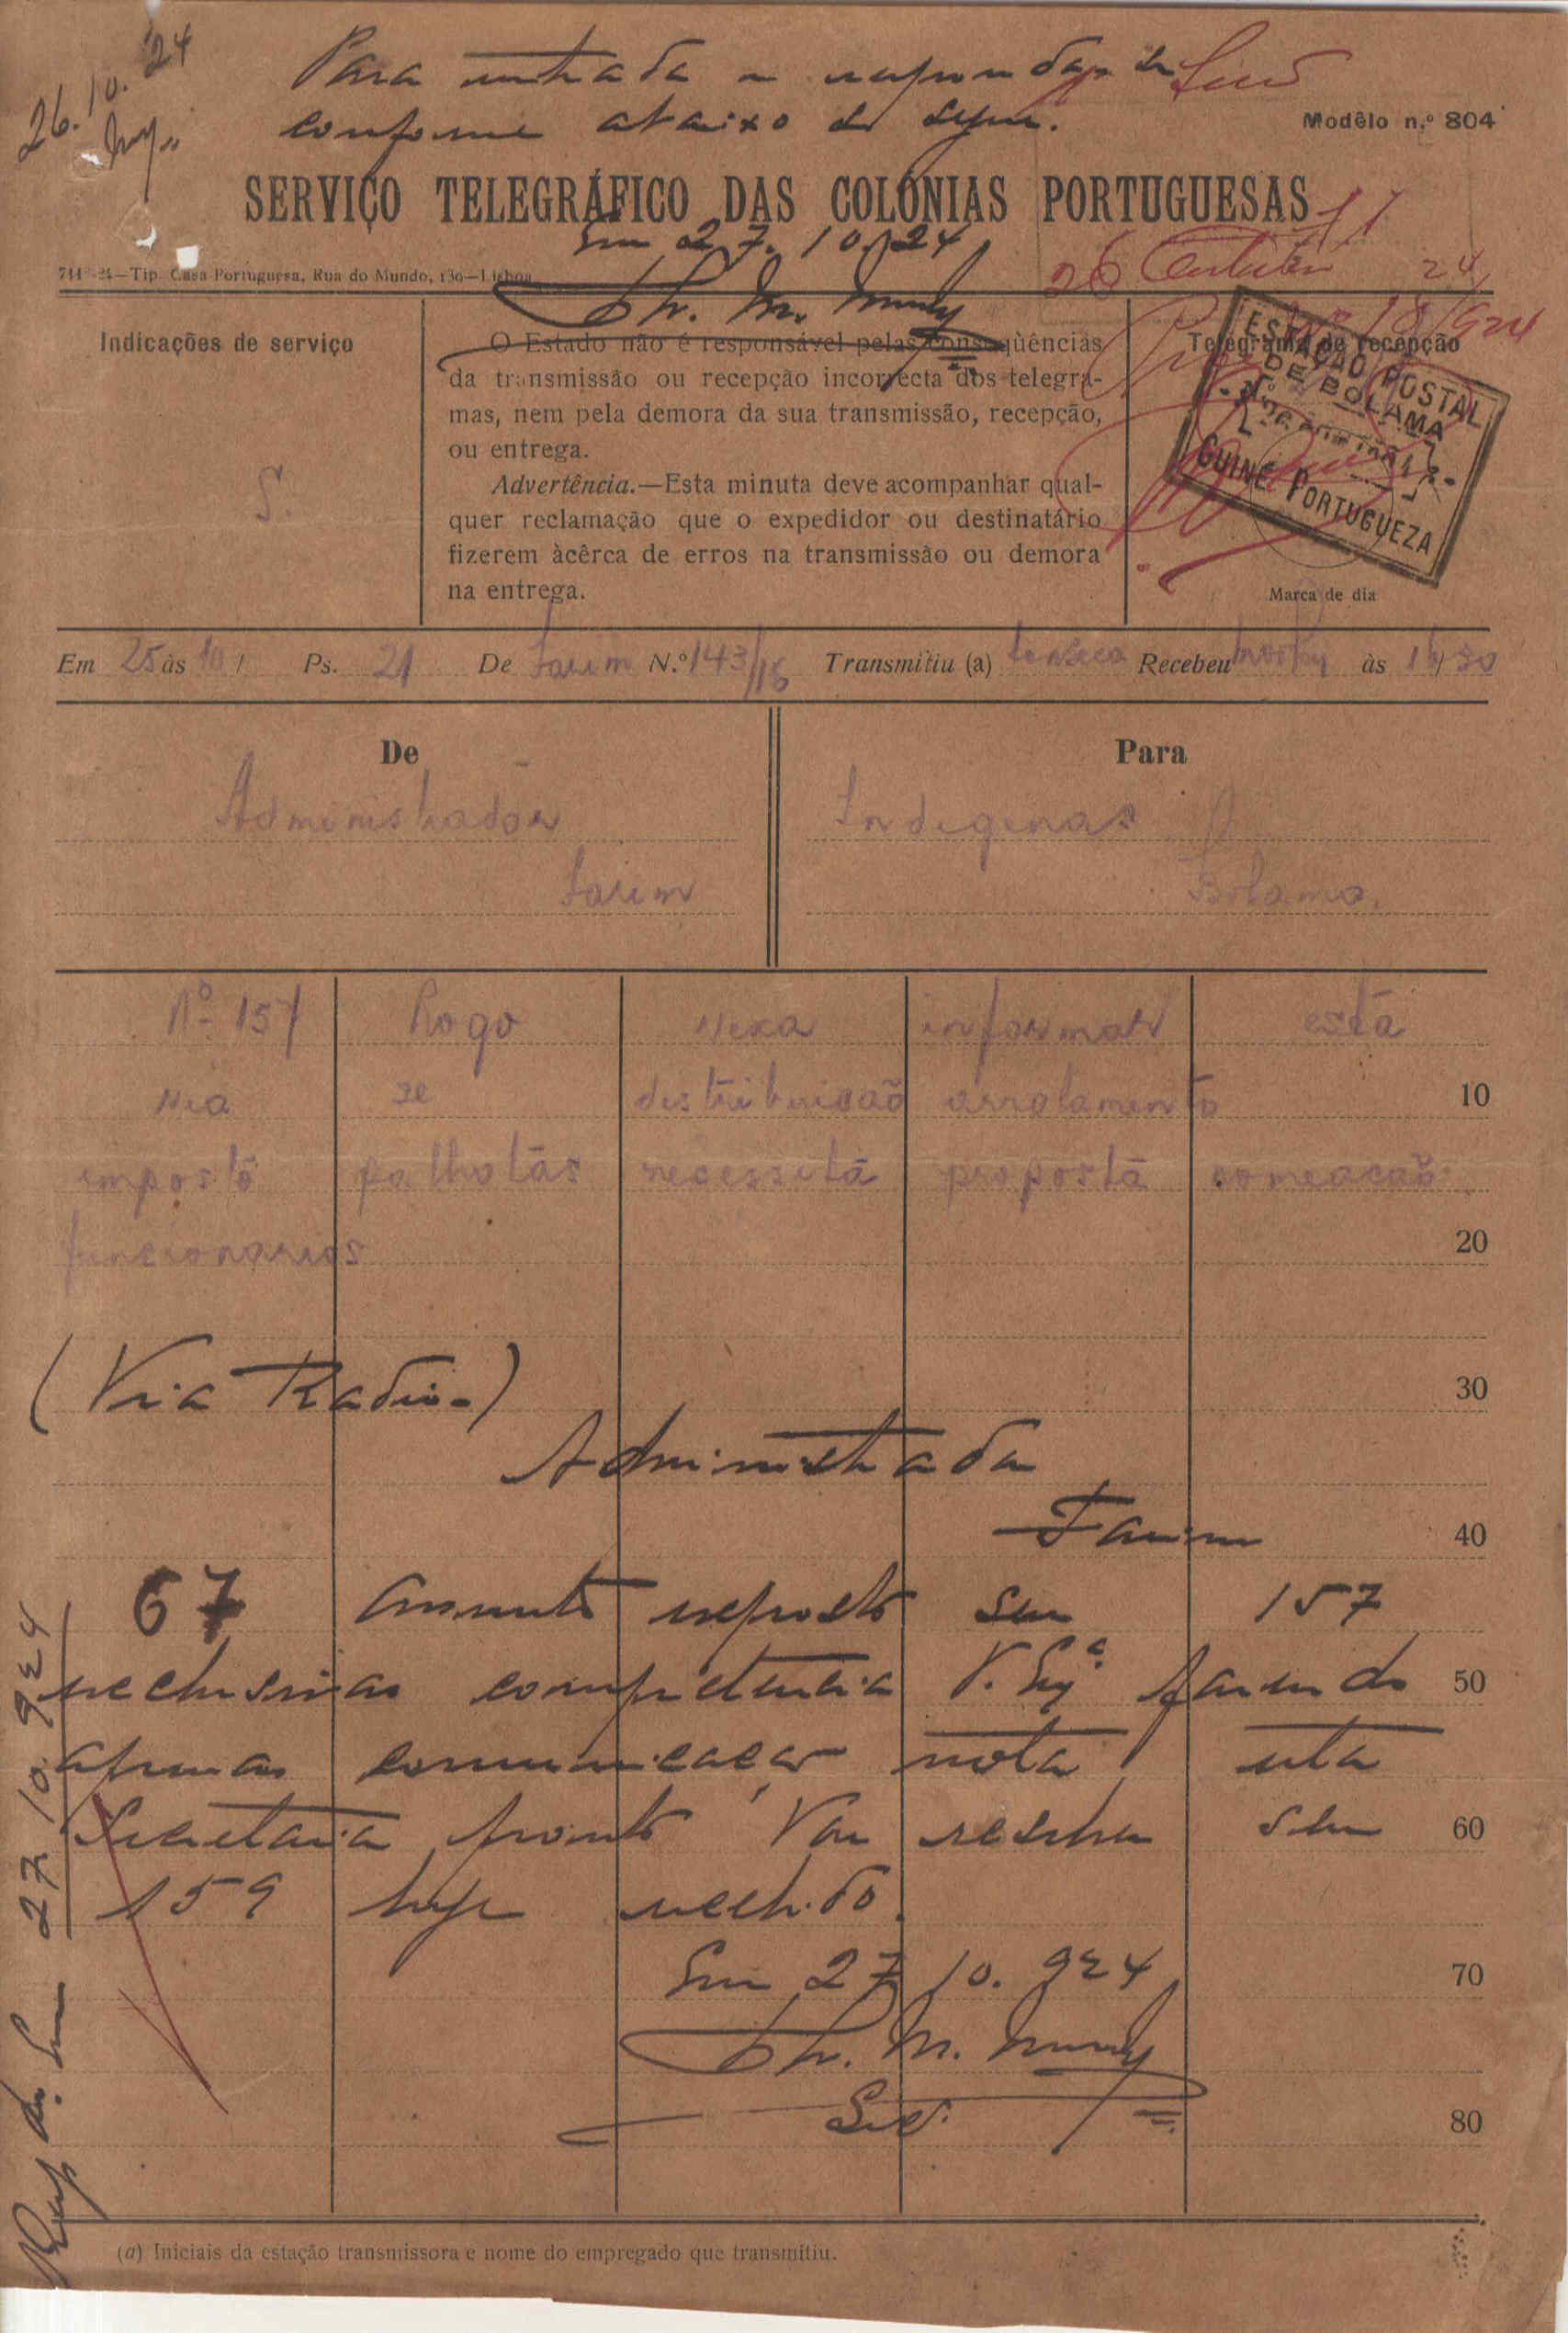 26.10.24
Para entrada e responda-se
conforme abaixo se segue.
Modêlo n.º 804
SERVIÇO TELEGRÁFICO DAS COLÓNIAS PORTUGUESAS
Em 27.10.24
744-24—Tip. Casa Portuguesa, Rua do Mundo, 130—Lisboa
26 Outubro 24
Indicações de serviço
S.
O Estado não é responsável pelas conseqüências
da transmissão ou recepção incorrecta dos telegra-
mas, nem pela demora da sua transmissão, recepção,
ou entrega.
Advertência.—Esta minuta deve acompanhar qual-
quer reclamação que o expedidor ou destinatário
fizerem àcêrca de erros na transmissão ou demora
na entrega.
Telegrama de recepção
ESTAÇÃO POSTAL
DE BOLAMA
GUINÉ PORTUGUEZA
Marca de dia
Em 25 às 10 / Ps. 21 De Farim N.º 143/18 Transmitiu (a) Fonseca Recebeu às 16/30
De
Para
Administrador
Indigenas
Farim
Bolama.
Nº 157 Rogo Vexa informar está
via se distribuicaõ arrolamento 10
imposto palhotas necessita proposta nomeacaõ
funcionarios 20
(Via Radio-) 30
Administrador
Farim 40
67 Assunto exposto seu 157
exclusivas competencia V. Exª fazendo 50
apenas comunicação nota esta
Secretaria pronto Vou resolver seu 60
159 hoje recebido.
Em 27 10. 924 70
80
Resp. 27 10 924
(a) Iniciais da estação transmissora e nome do empregado que transmitiu.